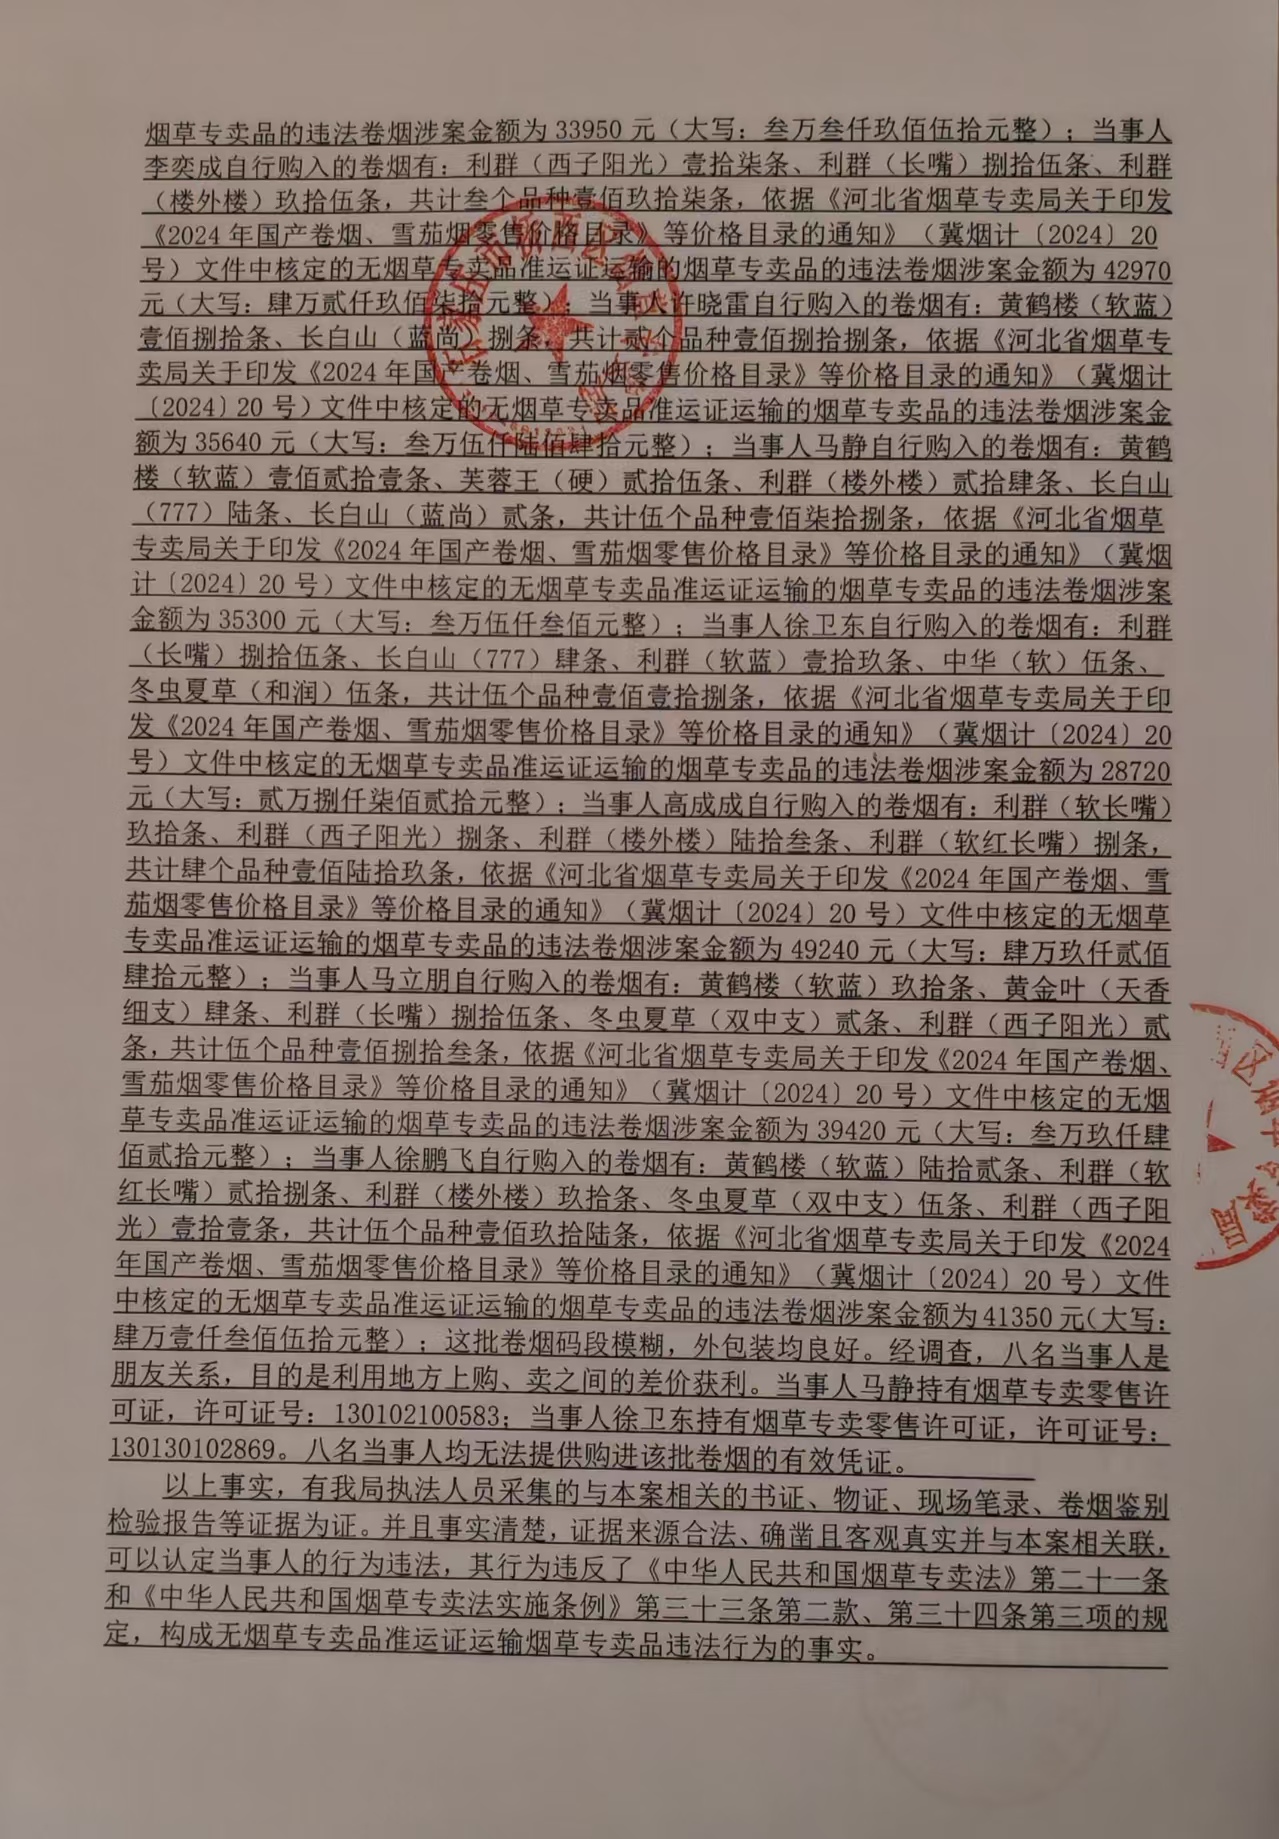 烟草专卖品的违法卷烟涉案金额为33950元（大写：叁万叁仟玖佰伍拾元整）；当事人
李奕成自行购入的卷烟有：利群（西子阳光）壹拾柒条、利群（长嘴）捌拾伍条、利群
（楼外楼）玖拾伍条，共计叁个品种壹佰玖拾柒条，依据《河北省烟草专卖局关于印发
《2024年国产卷烟、雪茄烟零售价格目录》等价格目录的通知》（冀烟计〔2024〕20
号）文件中核定的无烟草专卖品准运证运输的烟草专卖品的违法卷烟涉案金额为42970
元（大写：肆万贰仟玖佰柒拾元整）；当事人许晓雷自行购入的卷烟有：黄鹤楼（软蓝）
壹佰捌拾条、长白山（蓝尚）捌条，共计贰个品种壹佰捌拾捌条，依据《河北省烟草专
卖局关于印发《2024年国产卷烟、雪茄烟零售价格目录》等价格目录的通知》（冀烟计
〔2024〕20号）文件中核定的无烟草专卖品准运证运输的烟草专卖品的违法卷烟涉案金
额为35640元（大写：叁万伍仟陆佰肆拾元整）；当事人马静自行购入的卷烟有：黄鹤
楼（软蓝）壹佰贰拾壹条、芙蓉王（硬）贰拾伍条、利群（楼外楼）贰拾肆条、长白山
（777）陆条、长白山（蓝尚）贰条，共计伍个品种壹佰柒拾捌条，依据《河北省烟草
专卖局关于印发《2024年国产卷烟、雪茄烟零售价格目录》等价格目录的通知》（冀烟
计〔2024〕20号）文件中核定的无烟草专卖品准运证运输的烟草专卖品的违法卷烟涉案
金额为35300元（大写：叁万伍仟叁佰元整）；当事人徐卫东自行购入的卷烟有：利群
（长嘴）捌拾伍条、长白山（777）肆条、利群（软蓝）壹拾玖条、中华（软）伍条、
冬虫夏草（和润）伍条，共计伍个品种壹佰壹拾捌条，依据《河北省烟草专卖局关于印
发《2024年国产卷烟、雪茄烟零售价格目录》等价格目录的通知》（冀烟计〔2024〕20
号）文件中核定的无烟草专卖品准运证运输的烟草专卖品的违法卷烟涉案金额为28720
元（大写：贰万捌仟柒佰贰拾元整）；当事人高成成自行购入的卷烟有：利群（软长嘴）
玖拾条、利群（西子阳光）捌条、利群（楼外楼）陆拾叁条、利群（软红长嘴）捌条，
共计肆个品种壹佰陆拾玖条，依据《河北省烟草专卖局关于印发《2024年国产卷烟、雪
茄烟零售价格目录》等价格目录的通知》（冀烟计〔2024〕20号）文件中核定的无烟草
专卖品准运证运输的烟草专卖品的违法卷烟涉案金额为49240元（大写：肆万玖仟贰佰
肆拾元整）；当事人马立朋自行购入的卷烟有：黄鹤楼（软蓝）玖拾条、黄金叶（天香
细支）肆条、利群（长嘴）捌拾伍条、冬虫夏草（双中支）贰条、利群（西子阳光）贰
条，共计伍个品种壹佰捌拾叁条，依据《河北省烟草专卖局关于印发《2024年国产卷烟、
雪茄烟零售价格目录》等价格目录的通知》（冀烟计〔2024〕20号）文件中核定的无烟
草专卖品准运证运输的烟草专卖品的违法卷烟涉案金额为39420元（大写：叁万玖仟肆
佰贰拾元整）；当事人徐鹏飞自行购入的卷烟有：黄鹤楼（软蓝）陆拾贰条、利群（软
红长嘴）贰拾捌条、利群（楼外楼）玖拾条、冬虫夏草（双中支）伍条、利群（西子阳
光）壹拾壹条，共计伍个品种壹佰玖拾陆条，依据《河北省烟草专卖局关于印发《2024
年国产卷烟、雪茄烟零售价格目录》等价格目录的通知》（冀烟计〔2024〕20号）文件
中核定的无烟草专卖品准运证运输的烟草专卖品的违法卷烟涉案金额为41350元（大写：
肆万壹仟叁佰伍拾元整）；这批卷烟码段模糊，外包装均良好。经调查，八名当事人是
朋友关系，目的是利用地方上购、卖之间的差价获利。当事人马静持有烟草专卖零售许
可证，许可证号：130102100583；当事人徐卫东持有烟草专卖零售许可证，许可证号：
130130102869。八名当事人均无法提供购进该批卷烟的有效凭证。
以上事实，有我局执法人员采集的与本案相关的书证、物证、现场笔录、卷烟鉴别
检验报告等证据为证。并且事实清楚，证据来源合法、确凿且客观真实并与本案相关联，
可以认定当事人的行为违法，其行为违反了《中华人民共和国烟草专卖法》第二十一条
和《中华人民共和国烟草专卖法实施条例》第三十三条第二款、第三十四条第三项的规
定，构成无烟草专卖品准运证运输烟草专卖品违法行为的事实。